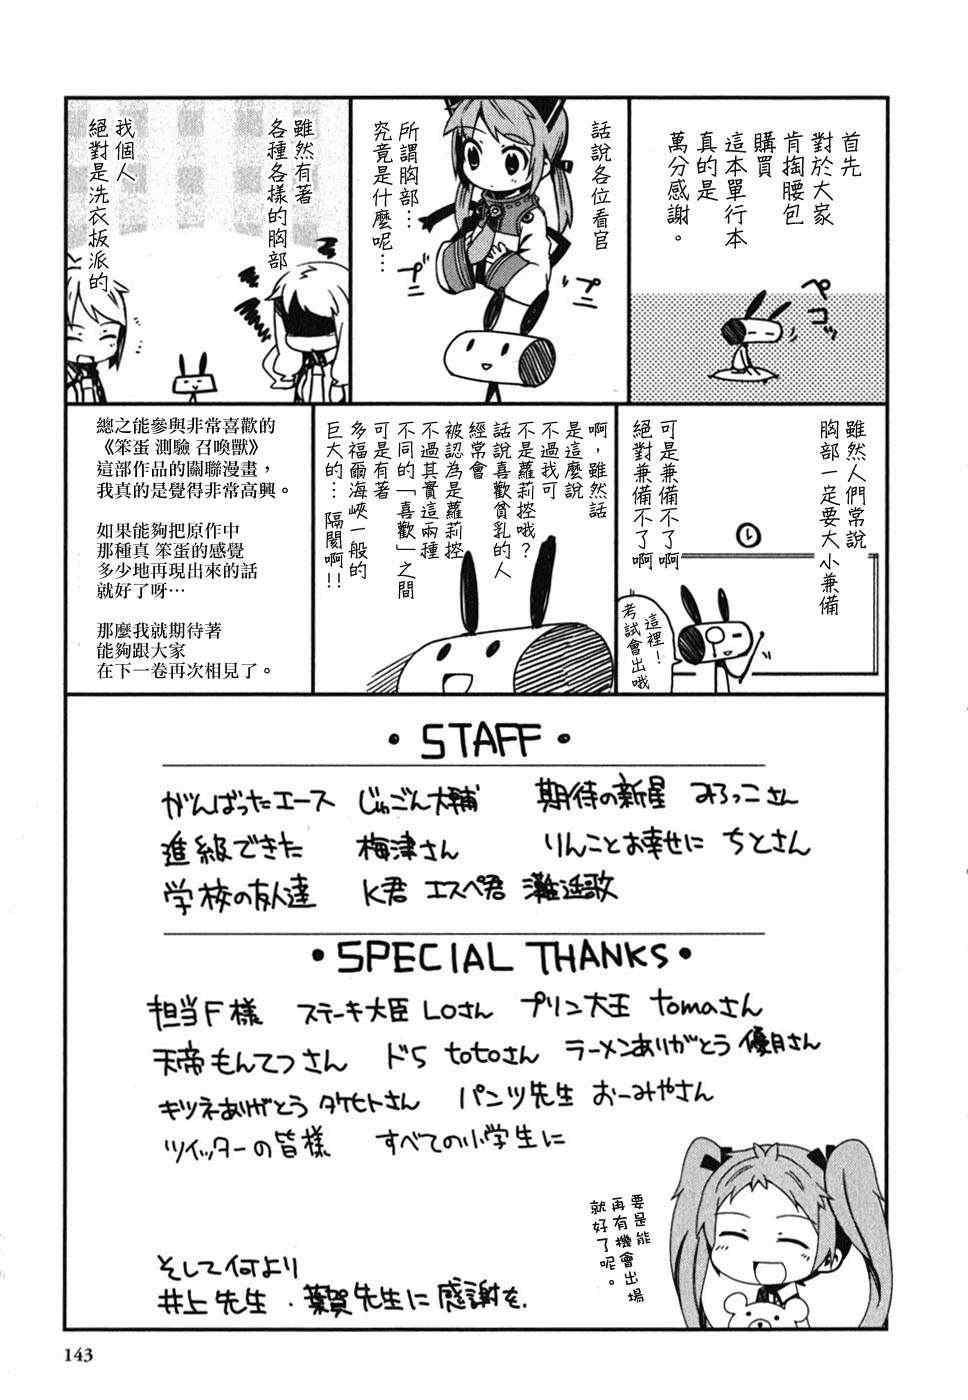 首先
對於大家
肯掏腰包
購買
這本單行本
真的是
萬分感謝。
ペコッ
話說各位看官
所謂胸部…
究竟是什麼呢…
プニ
プニ
雖然有著
各種各樣的胸部
我個人
絕對是洗衣板派的
雖然人們常說
胸部一定要大小兼備
可是兼備不了啊
絕對兼備不了啊
這裡！
考試會出哦
啊，雖然話
是這麼說
不過我可
不是蘿莉控哦？
話說喜歡貧乳的人
經常會
被認為是蘿莉控
不過其實這兩種
不同的「喜歡」之間
可是有著
多福爾海峽一般的
巨大的… 隔閡啊!!
總之能參與非常喜歡的
《笨蛋 測驗 召喚獸》
這部作品的關聯漫畫，
我真的是覺得非常高興。
如果能夠把原作中
那種真 笨蛋的感覺
多少地再現出來的話
就好了呀…
那麼我就期待著
能夠跟大家
在下一卷再次相見了。
・STAFF・
がんばったエース じゅごん大輔 期待の新星 みろっこさん
進級できた 梅津さん りんことお幸せに ちとさん
学校の友人達 K君 エスペ君 灘返歌
・SPECIAL THANKS・
担当F様 ステーキ大臣 LOさん プリン大王 tomaさん
天帝もんてつさん ド5 totoさん ラーメンありがとう 優月さん
キツネありがとう タケヒトさん パンツ先生 おーみやさん
ツイッターの皆様 すべての小学生に
要是能
再有機會出場
就好了呢。
そして何より
井上先生・葉賀先生に感謝を。
143